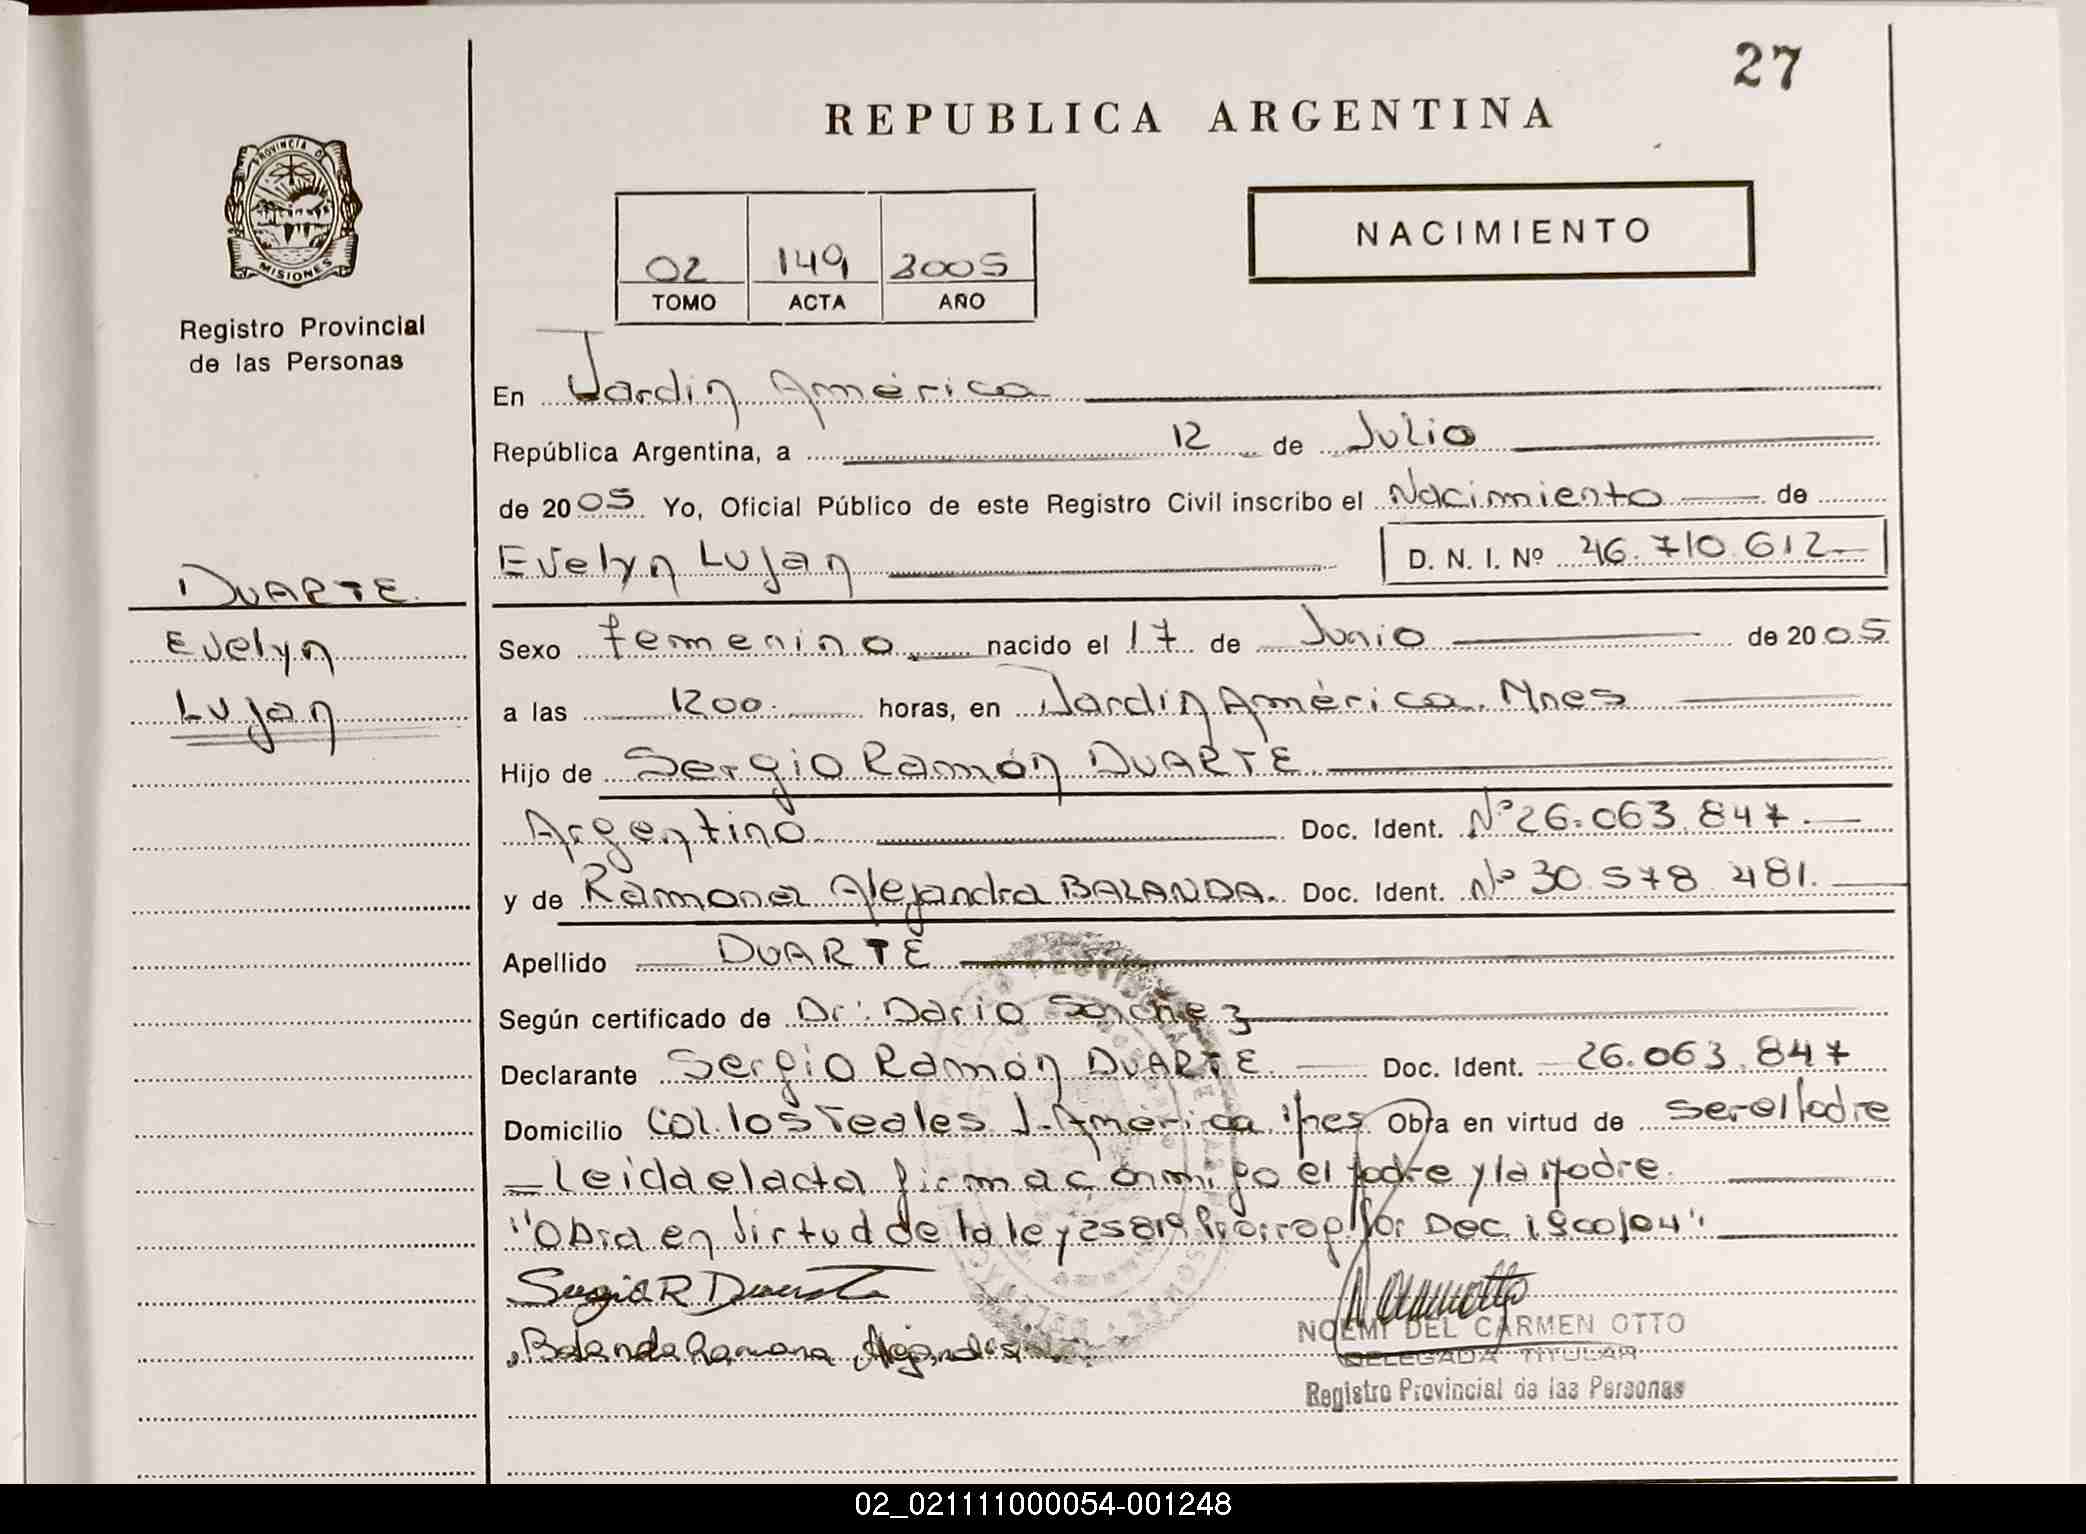 27
REPUBLICA ARGENTINA
PROVINCIA DE
MISIONES
NACIMIENTO
02 149 2005
TOMO ACTA AÑO
Registro Provincial
de las Personas
En Jardín América
República Argentina, a 12 de Julio
de 2005 Yo, Oficial Público de este Registro Civil inscribo el Nacimiento de
Evelyn Lujan D. N. I. Nº 46.710.612
DUARTE
Evelyn
Lujan
Sexo femenino nacido el 17 de Junio de 2005
a las 1200 horas, en Jardín América. Mnes
Hijo de Sergio Ramón DUARTE
Argentino Doc. Ident. Nº 26.063.847.
y de Ramona Alejandra BALANDA. Doc. Ident. Nº 30.578.481.
Apellido DUARTE
Según certificado de Dr: Dario Sanchez
Declarante Sergio Ramón DUARTE. Doc. Ident. 26.063.847
Domicilio Col. los Teales J. América Mnes Obra en virtud de ser el Padre
Leida el acta firma conmigo el padre y la Madre.
"Obra en virtud de la ley 25819 Prorrog por Dec. 1900/04"
Sergio R Duarte
Balanda Ramona Alejandra
NOEMI DEL CARMEN OTTO
DELEGADA TITULAR
Registro Provincial de las Personas
02_021111000054-001248